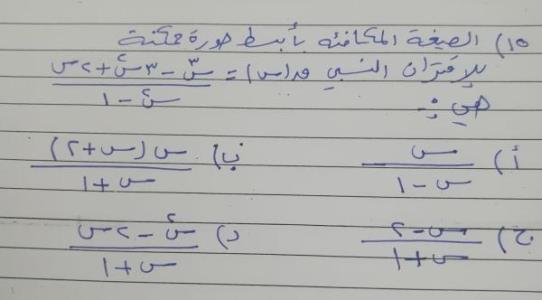 ١٥) الصيغة المكافئة بأبسط صورة ممكنة
للإقتران النسبي ق(س) = (س³ - ٣س² + ٢س) / (س² - ١)
هي :-
أ) س / (س - ١) ب) س(س + ٢) / (س + ١)
ج) (س - ٢) / (س + ١) د) (س² - ٢س) / (س + ١)